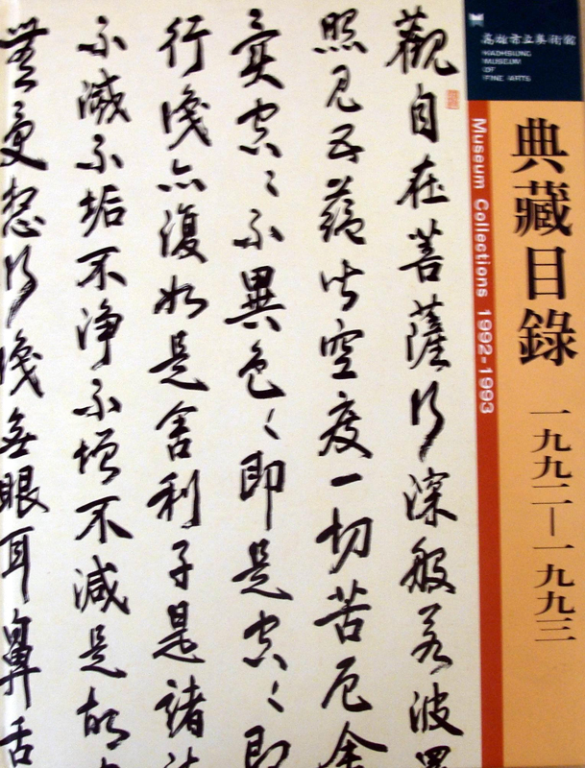 高雄市立美術館
KAOHSIUNG
MUSEUM
OF
FINE ARTS
典藏目錄
一九九二—一九九三
Museum Collections 1992-1993
觀自在菩薩行深般若波
照見五蘊皆空度一切苦厄舍
不異空〻不異色〻即是空〻即
行識亦復如是舍利子是諸
不滅不垢不淨不增不減是故
無受想行識無眼耳鼻舌